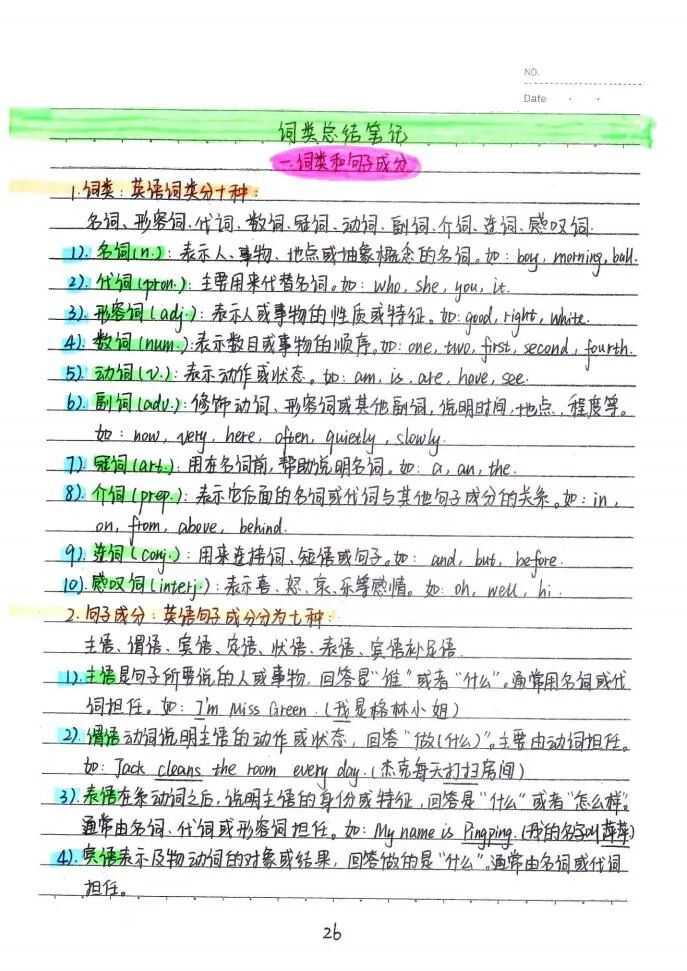 NO.
Date
词类总结笔记
一.词类和句子成分
1.词类：英语词类分十种：
名词、形容词、代词、数词、冠词、动词、副词、介词、连词、感叹词.
1). 名词(n.)：表示人、事物、地点或抽象概念的名词。如：boy, morning, ball.
2). 代词(pron.)：主要用来代替名词。如：who, she, you, it.
3). 形容词(adj.)：表示人或事物的性质或特征。如：good, right, white.
4). 数词(num.)：表示数目或事物的顺序。如：one, two, first, second, fourth.
5). 动词(v.)：表示动作或状态。如：am, is, are, have, see.
6). 副词(adv.)：修饰动词、形容词或其他副词，说明时间，地点，程度等。
如：now, very, here, often, quietly, slowly.
7). 冠词(art.)：用在名词前，帮助说明名词。如：a, an, the.
8). 介词(prep.)：表示它后面的名词或代词与其他句子成分的关系。如：in,
on, from, above, behind.
9). 连词(conj.)：用来连接词、短语或句子。如：and, but, before.
10). 感叹词(interj.)：表示喜、怒、哀、乐等感情。如：oh, well, hi.
2. 句子成分：英语句子成分分为七种：
主语、谓语、宾语、定语、状语、表语、宾语补足语.
1). 主语是句子所要说的人或事物，回答是“谁”或者“什么”。通常用名词或代
词担任。如：I'm Miss Green.(我是格林小姐)
2). 谓语动词说明主语的动作或状态，回答“做(什么)”。主要由动词担任。
如：Jack cleans the room every day.(杰克每天打扫房间)
3). 表语在系动词之后，说明主语的身份或特征，回答是“什么”或者“怎么样”。
通常由名词、代词或形容词担任。如：My name is Pingping.(我的名字叫萍萍)
4). 宾语表示及物动词的对象或结果，回答做的是“什么”。通常由名词或代词
担任。
26